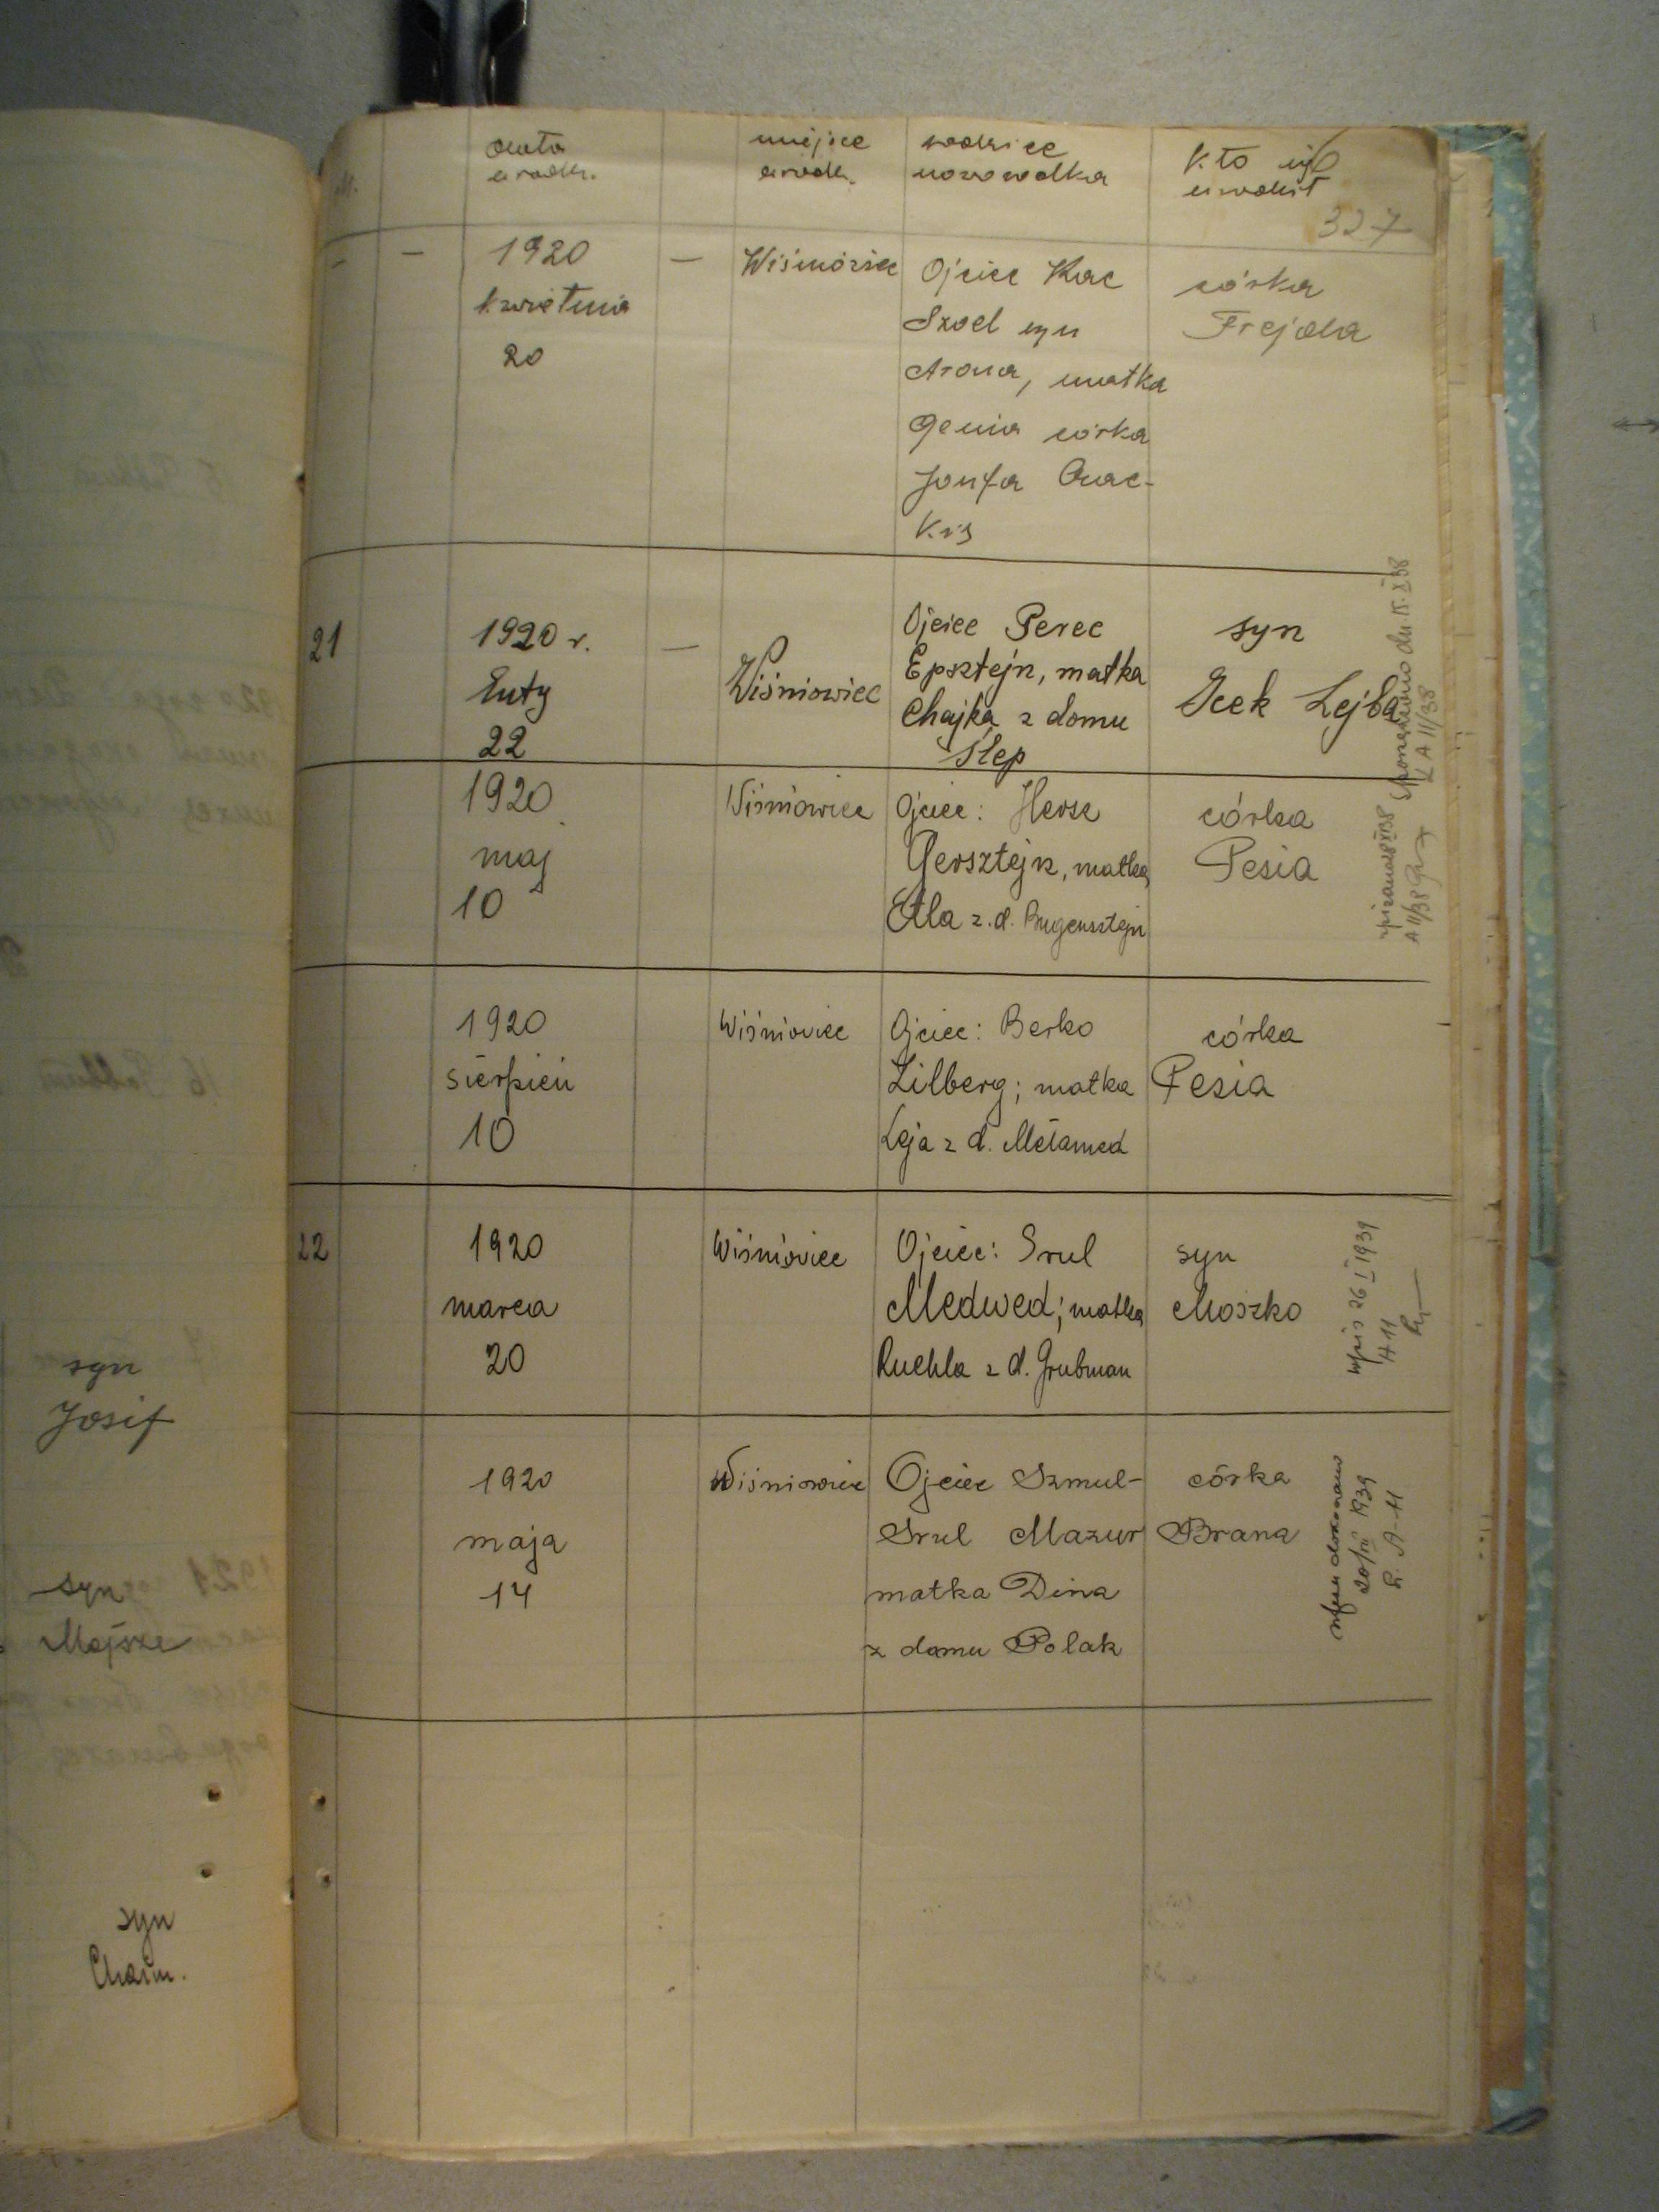 data
urodz.
miejsce
urodz.
rodzice
noworodka
Kto się
urodził
327
1920
kwietnia
20
Wiśniowiec
Ojciec Kac
Szoel syn
Arona, matka
Genia córka
Jonfa
córka
Frejda
21
1920 r.
Luty
22
Wiśniowiec
Ojciec Perec
Epsztejn, matka
Chajka z domu
Slep
syn
Icek Lejba
Sporządzono dn. 15.X.38
L A 11/38
1920
maj
10
Wiśniowiec
Ojciec: Hersz
Gersztejn, matka
Etla z.d. Bugensztejn
córka
Pesia
A 11/38
1920
sierpień
10
Wiśniowiec
Ojciec: Berko
Zilberg; matka
Leja z d. Mełamed
córka
Pesia
22
1920
marca
20
Wiśniowiec
Ojciec: Srul
Medwed; matka
Ruchla z d. Grubman
syn
Moszko
wpis 26 I 1939
A 11
1920
maja
14
Wiśniowiec
Ojciec Szmul-
Srul Mazur
matka Dina
z domu Polak
córka
Brana
wpisu dokonano
1939
syn
Josif
syn
Mejsze
syn
Chaim.